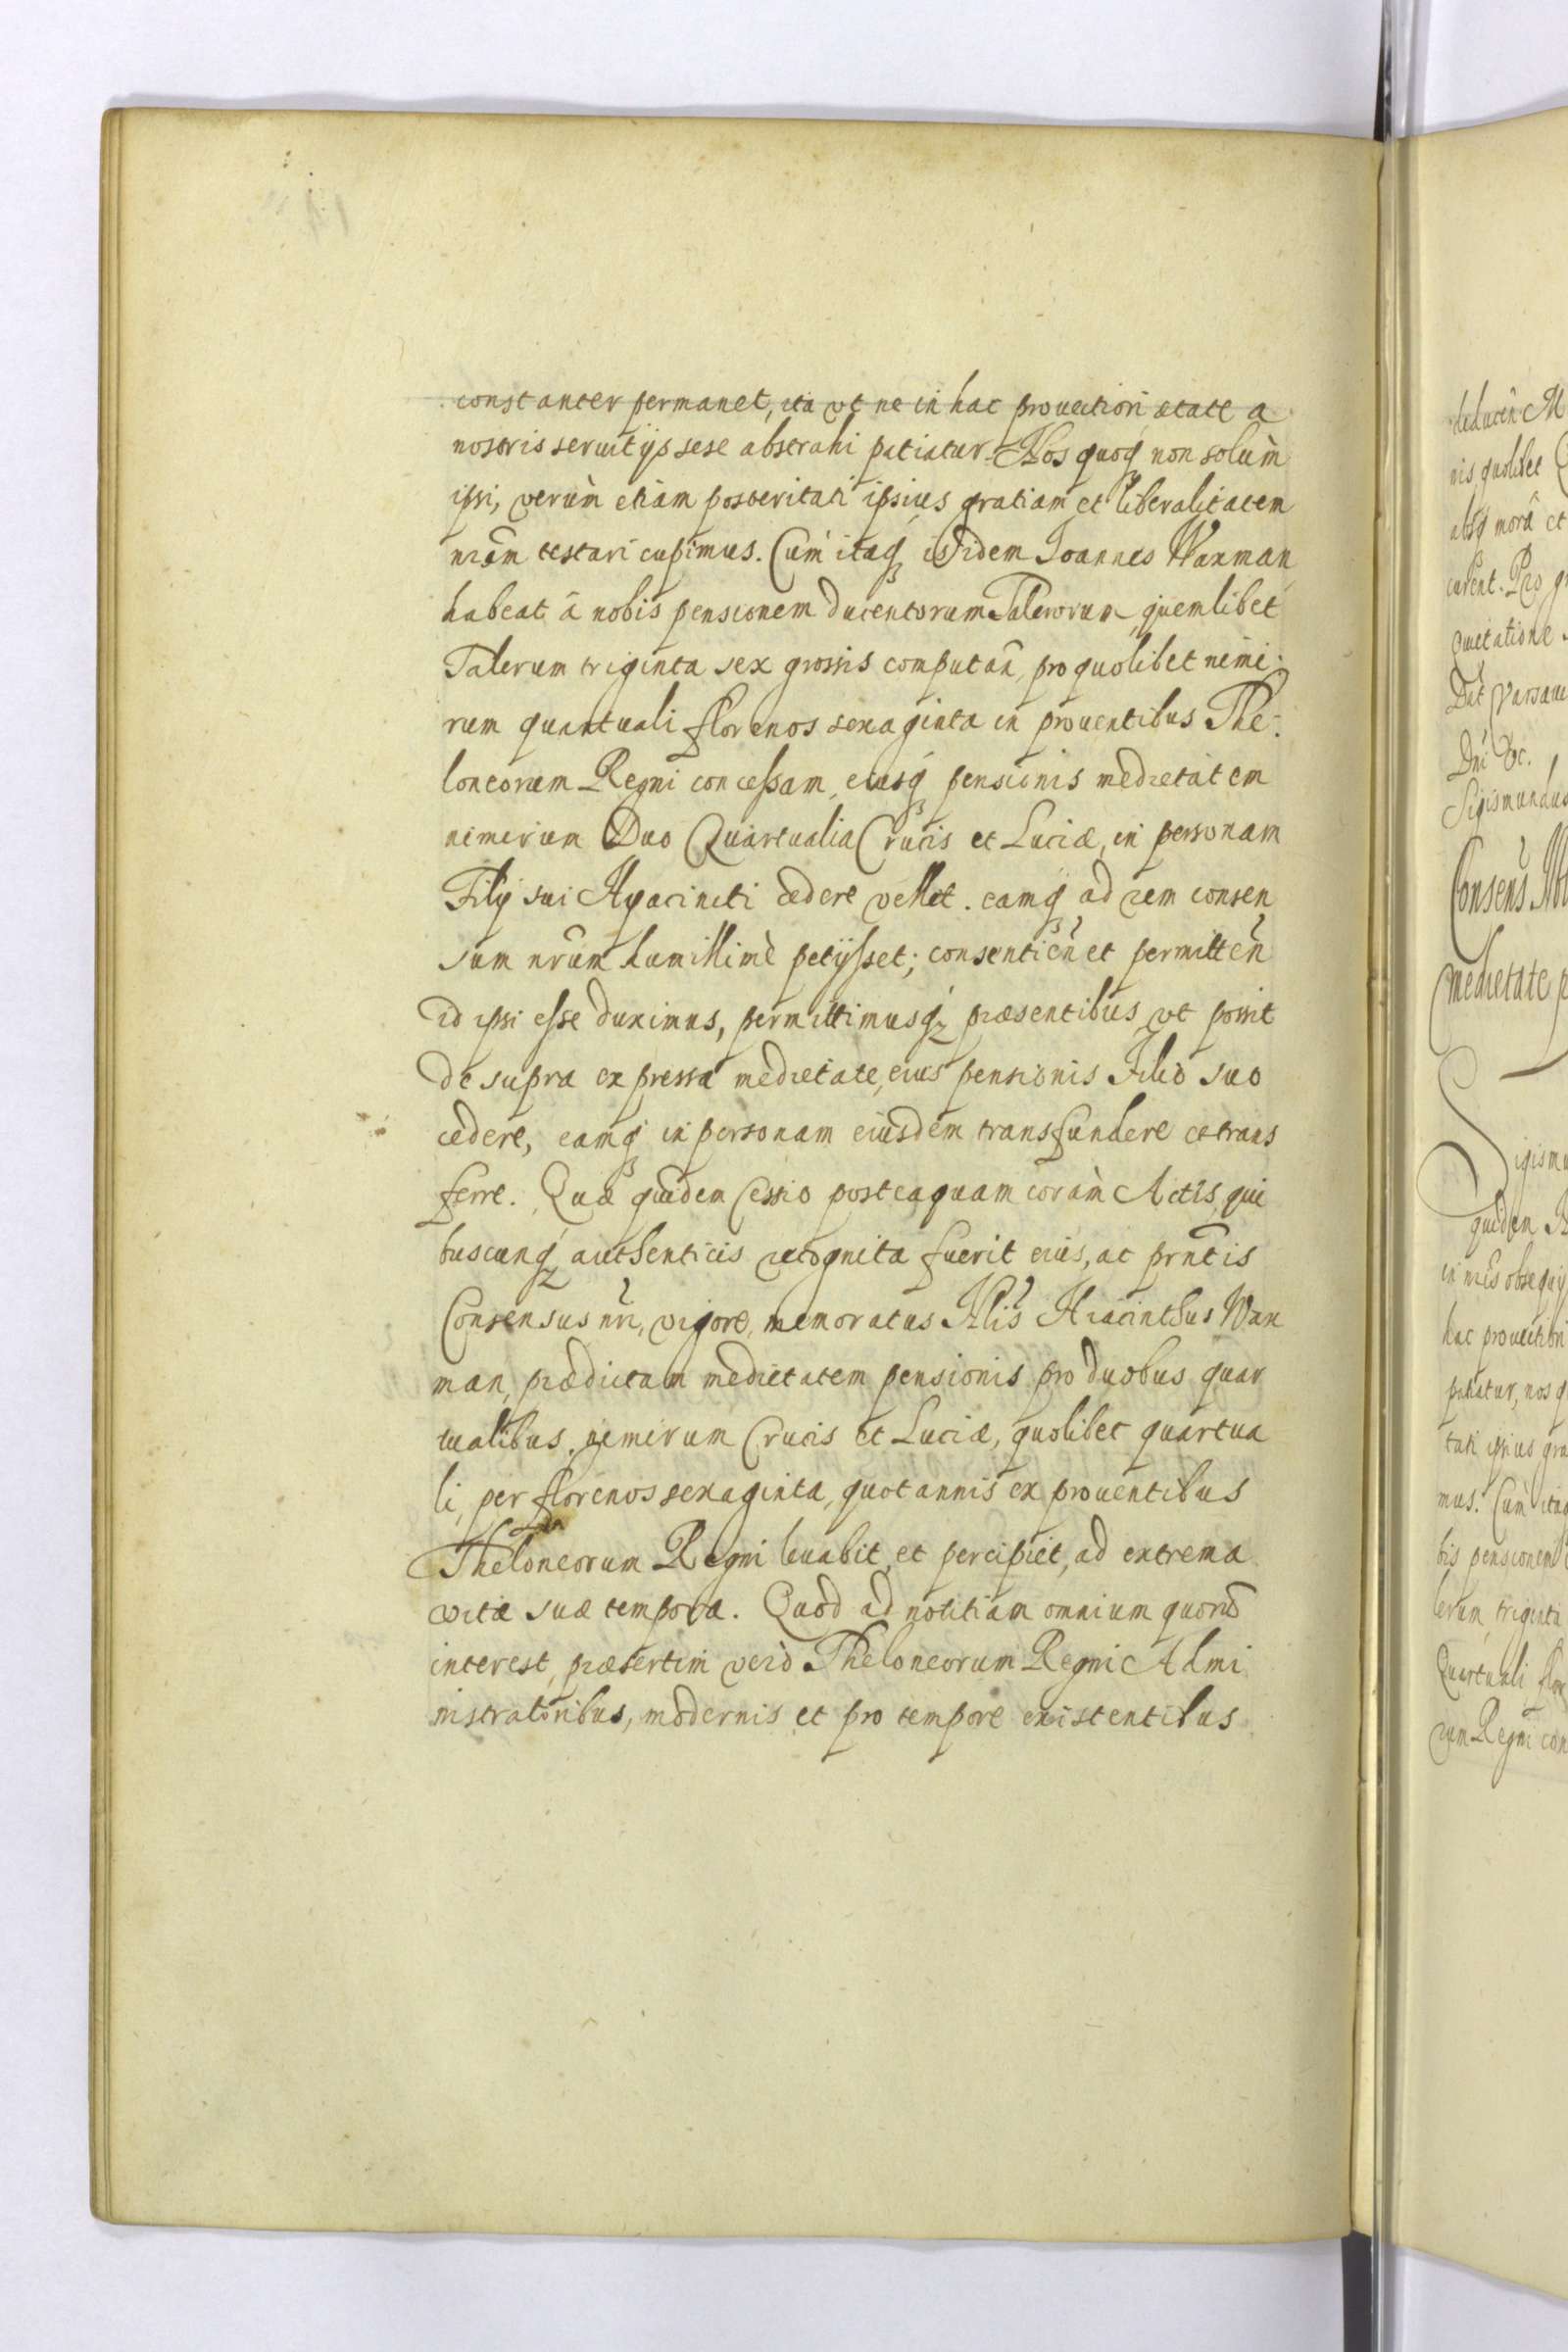 constanter permanet, ita vt ne in hac prouectiori ætate a
nostris seruitijs sese abstrahi patiatur. Nos quoq3 non solùm
ipsi, verùm etiàm posteritati ipsius gratiam et liberalitatem
nrãm testari cupimus. Cùm itaq3 isdem Ioannes Waxman
habeat â nobis pensionem ducentorum Talerorum, quemlibet
Talerum triginta sex grossis computañ, pro quolibet nimi:
rum quartuali florenos sexaginta in prouentibus The:
loneorum Regni concessam, eiusq3 pensionis medietatem
nimirum Duo Quartualia Crucis et Luciæ, in personam
Filij sui Hyacinthi cedere vellet. eamq3 ad rem consen
sum nrũm humillimè petijsset; consentieñ et permitteñ
id ipsi esse duximus, permittimusq3 præsentibus, vt possit
de supra expressa medietate, eius pensionis Filio suo
cedere, eamq3 in personam eiusdem transfundere et trans
ferre. Quæ quidem Cessio posteaquam coràm Actis, qui
buscunq3 authenticis recognita fuerit eius, ac prñtis
Consensus nři, vigore, memoratus Nlis Hiacinthus Wax
man, prædictam medietatem pensionis pro duobus quar
tualibus, nimirum Crucis et Luciæ, quolibet quartua
li, per florenos sexaginta, quotannis ex prouentibus
Theloneorum Regni leuabit, et percipiet, ad extrema
vitæ suæ tempora. Quod ad notitiam omnium quorũ
interest, præsertim verò Theloneorum Regni Admi
nistratoribus, modernis et pro tempore existentibus
deducên M
nis quolibet
absq3 morâ et
curent. Pro
quietatione
Dat Varsau
Dni &c.
Sigismundus
Consens
medietate
Sigismu
quidem
in nris obsequij
hac prouectiori
patiatur, nos q
tati ipsius gra
mus. Cùm itaq
bis pensionem
lerum triginta
Quartuali flor
rum Regni con